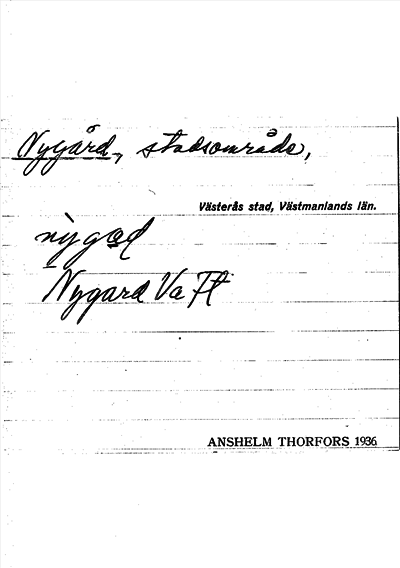 Nygård, stadsområde,
Västerås stad, Västmanlands län.
nỳgad
Nygard Va Fl
ANSHELM THORFORS 1936